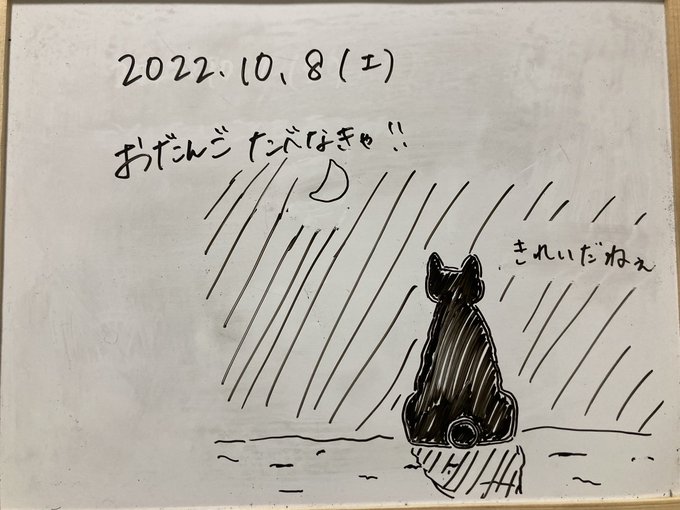 2022.10.8(土)
おだんご たべなきゃ!!
きれいだねぇ